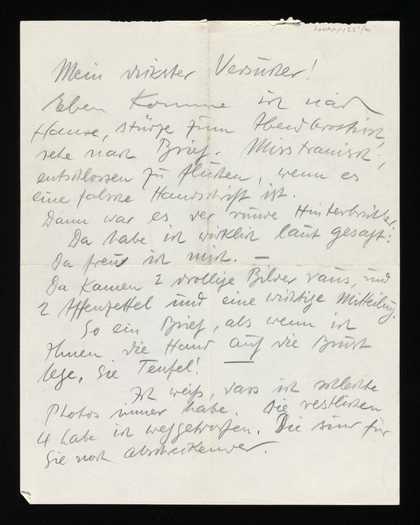 Mein dickster Versucher!
Eben komme ich nach
Hause, stürze zum
sehe nach Brief. Misstrauisch,
entschlossen zu fluchen, wenn es
eine falsche Handschrift ist.
Dann war es der
Da habe ich wirklich laut gesagt:
Da freu ich mich. —
Da kamen 2 drollige Bilder raus, und
2 Affenzettel und eine wichtige Mitteilung.
So ein Brief, als wenn ich
Ihnen die Hand auf die Brust
lege, Sie Teufel!
Ich weiß, dass ich schlechte
Photos immer habe. Die restlichen
4 habe ich weggeworfen. Die sind für
Sie noch abschreckender.